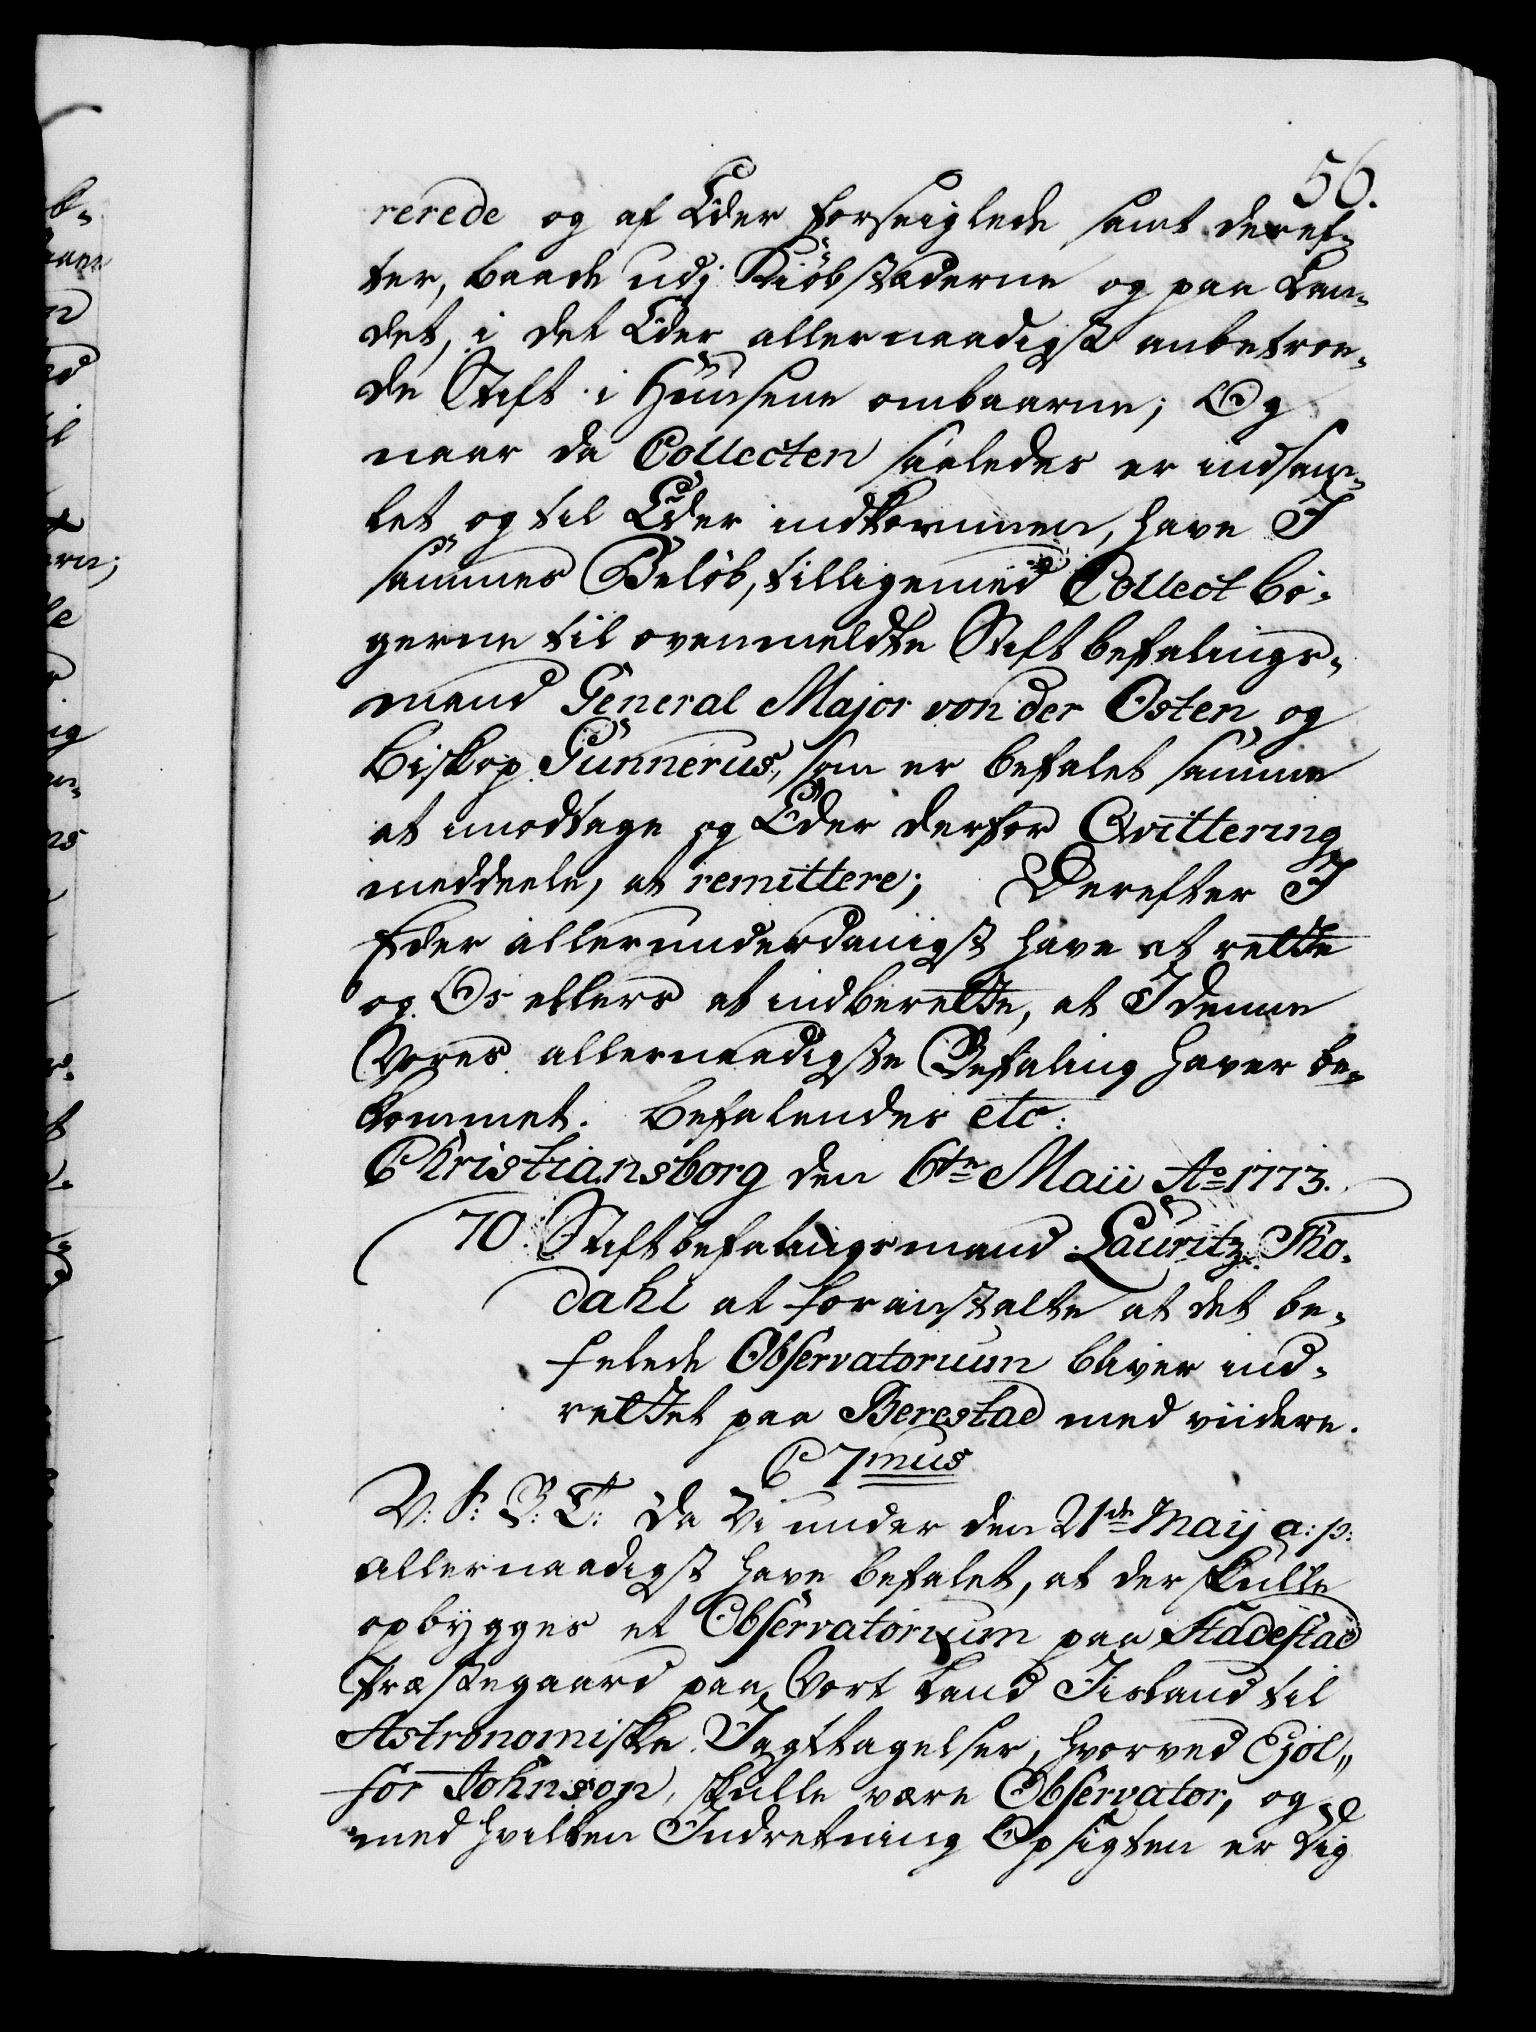 56.
rerede og af Eder forseiglede samt deref-
ter, baade udj Kiöbstæderne og paa Lan-
det, i det Eder allernaadigst anbetroe-
de Stift i Huusene ombaarne; Og
naar da Collecten saaledes er indsam-
let og til Eder indkommen, have I
sammes Beløb, tilligemed Collect bö-
gerne til ovenmeldte Stiftbefalings-
mand General Major von der Osten og
Biskop Gunnerus, som er befalet samme
at imodtage og Eder derfor Qvittering
meddeele, at remittere; Derefter I
Eder allerunderdanigst have at rette
og Os ellers at indberette, at I denne
Vores allernaadigste Befaling haver be-
kommet. Befalendes etc:
Christiansborg den 6te Maii Ao 1773.
70. Stiftbefalingsmand Lauritz Tho-
dahl at foranstalte at det be-
falede Observatorium bliver ind-
rettet paa Berestad med viidere.
C 7mus
V: S: G: T: Da Vi under den 21de Maij a: p:
allernaadigst have befalet, at der skulle
opbygges et Observatorium paa Stadestad
Præstegaard paa Vort Land Iisland til
Astronomiske Iagttagelser, hvorved Ejol-
for Johnson, skulle være Observator, og
med hvilken Indretning Opsigten er Dig